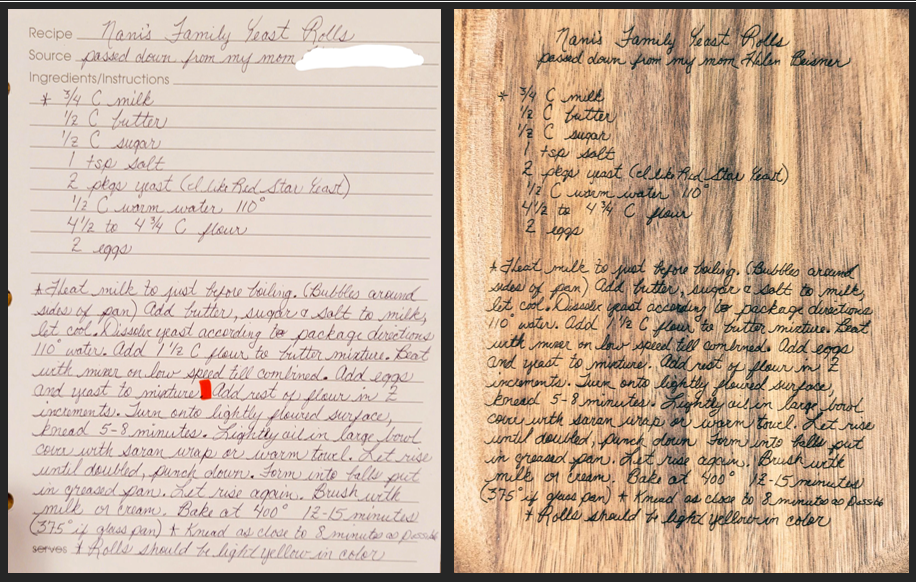 Recipe Nani's Family Yeast Rolls
Source passed down from my mom
Ingredients/Instructions
* 3/4 C milk
1/2 C butter
1/2 C sugar
1 tsp salt
2 pkgs yeast (I like Red Star Yeast)
1/2 C warm water 110°
4 1/2 to 4 3/4 C flour
2 eggs
* Heat milk to just before boiling. (Bubbles around
sides of pan) Add butter, sugar & salt to milk,
let cool. Dissolve yeast according to package directions
110° water. Add 1 1/2 C flour to butter mixture. Beat
with mixer on low speed till combined. Add eggs
and yeast to mixture Add rest of flour in 2
increments. Turn onto lightly floured surface,
knead 5-8 minutes. Lightly oil in large bowl
cover with saran wrap or warm towel. Let rise
until doubled, punch down. Form into balls put
in greased pan. Let rise again. Brush with
milk or cream. Bake at 400° 12-15 minutes
(375° if glass pan) * Knead as close to 8 minutes as possible
serves * Rolls should be light yellow in color
Nani's Family Yeast Rolls
passed down from my mom Helen Beisner
* 3/4 C milk
1/2 C butter
1/2 C sugar
1 tsp salt
2 pkgs yeast (I like Red Star Yeast)
1/2 C warm water 110°
4 1/2 to 4 3/4 C flour
2 eggs
* Heat milk to just before boiling. (Bubbles around
sides of pan) Add butter, sugar & salt to milk,
let cool. Dissolve yeast according to package directions
110° water. Add 1 1/2 C flour to butter mixture. Beat
with mixer on low speed till combined. Add eggs
and yeast to mixture. Add rest of flour in 2
increments. Turn onto lightly floured surface,
knead 5-8 minutes. Lightly oil in large bowl
cover with saran wrap or warm towel. Let rise
until doubled, punch down Form into balls put
in greased pan. Let rise again. Brush with
milk or cream. Bake at 400° 12-15 minutes
(375° if glass pan) * Knead as close to 8 minutes as possible
* Rolls should be light yellow in color